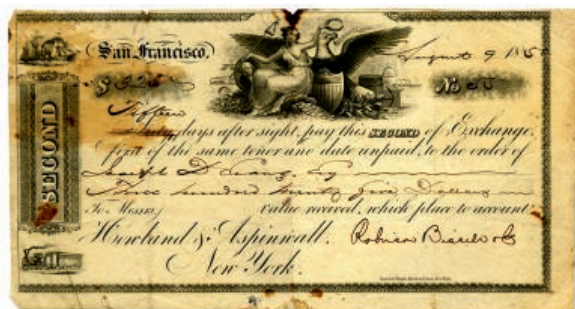 San Francisco. August 9 185
$325 No 55
SECOND
Fifteen
days after sight, pay this SECOND of Exchange,
first of the same tenor and date unpaid, to the order of
Joseph D
Three hundred twenty five Dollars
To Messrs value received, which place to account
Howland & Aspinwall.
New York.